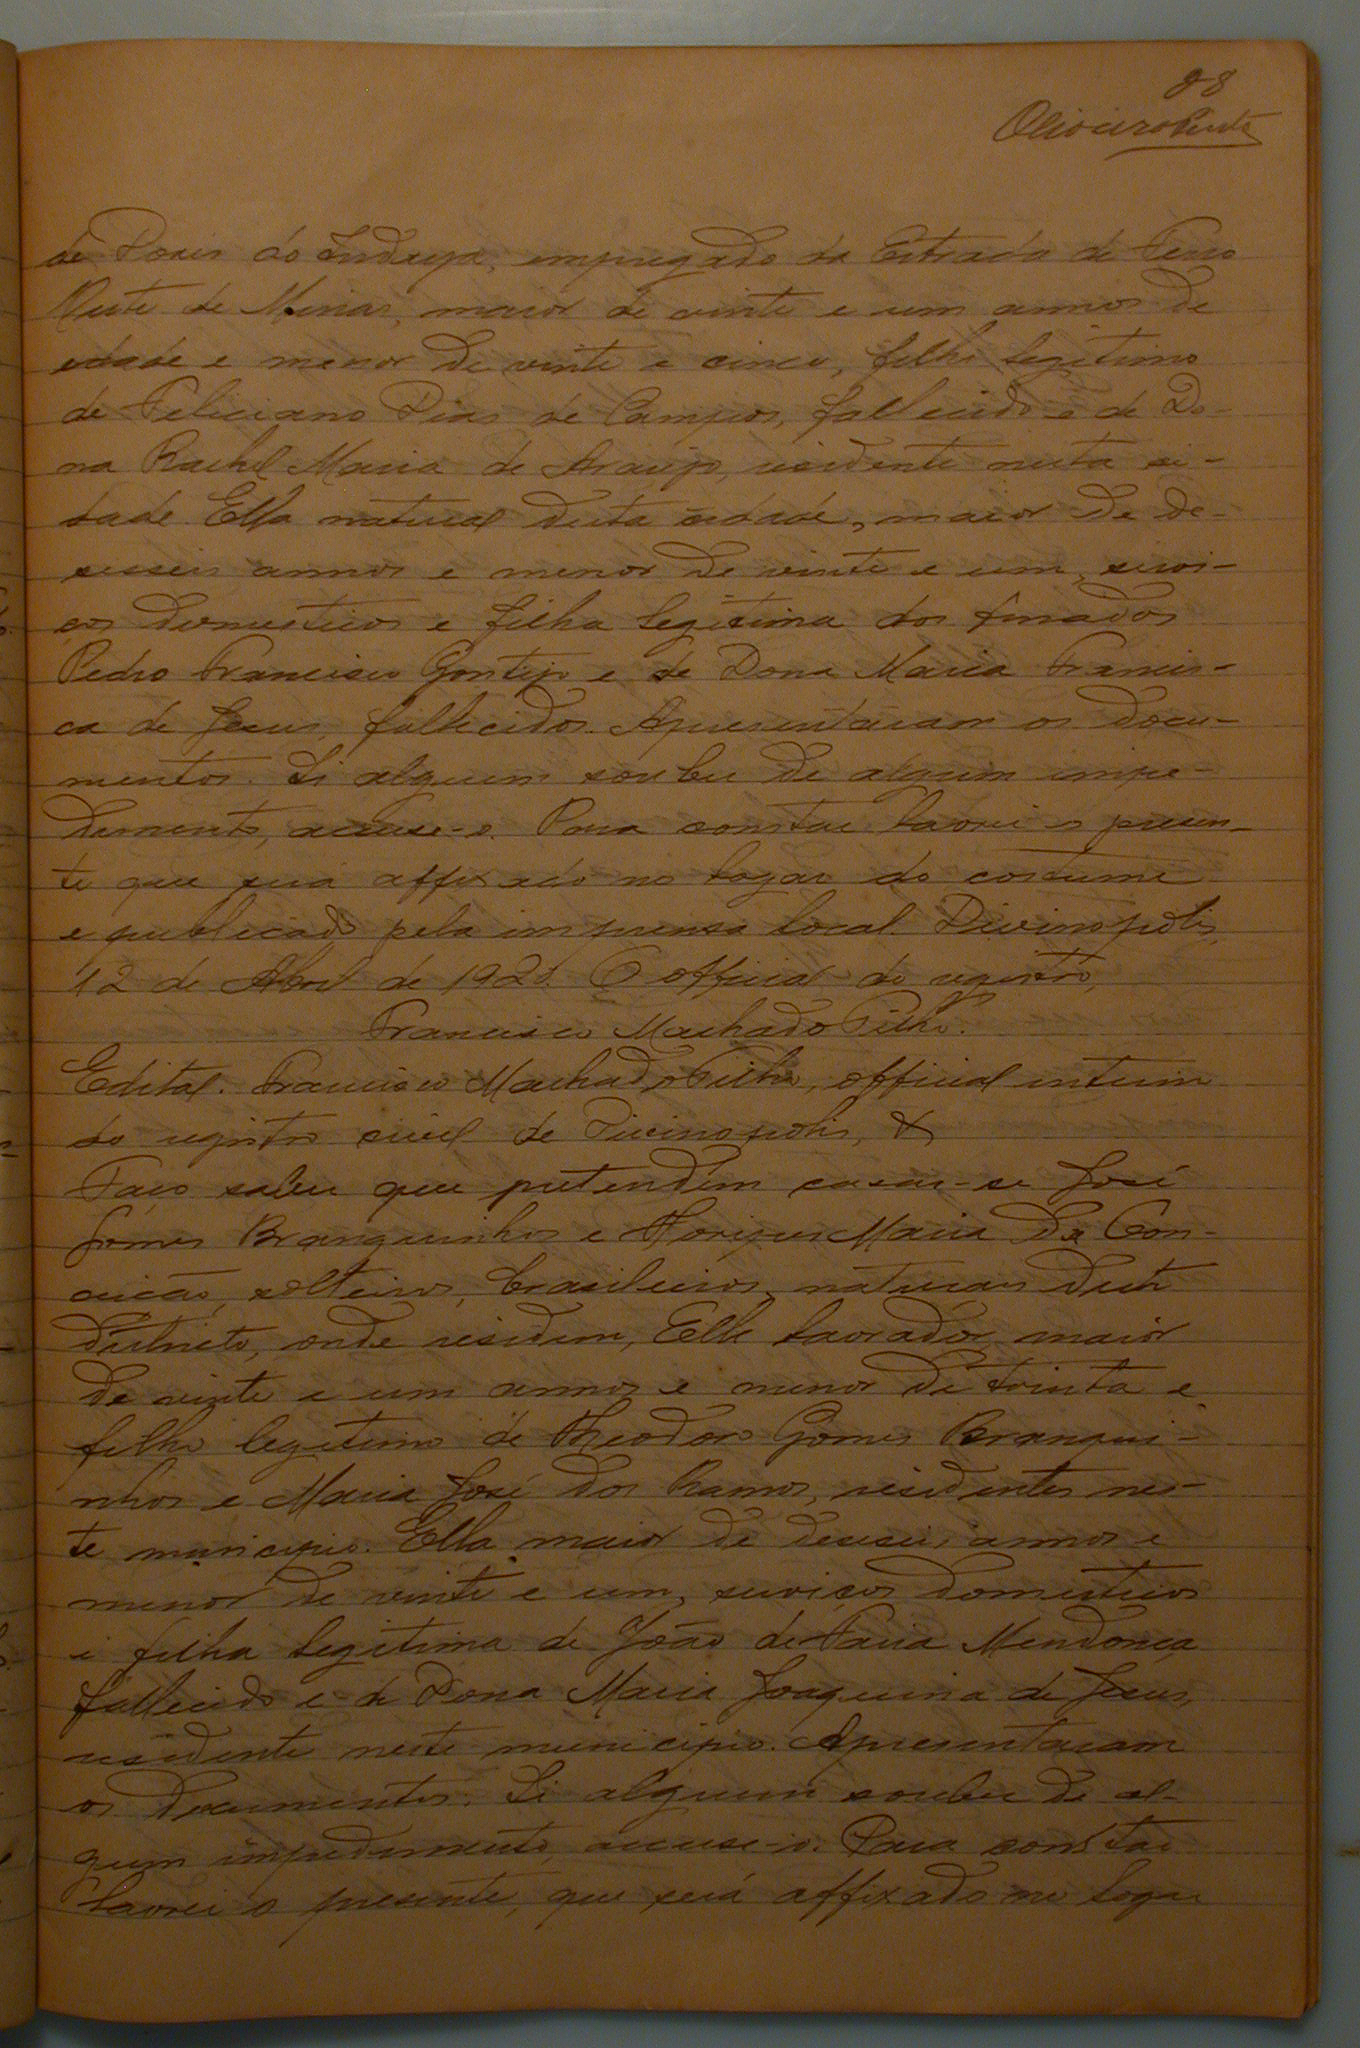 28
Oliveira Penta
de Dores do Indaya, empregado da Estrada de Ferro
Oeste de Minas, maior de vinte e um annos de
edade e menor de vinte e cinco, filho legitimo
de Feliciano Dias de Campos, fallecido e de Do-
na Rachel Maria de Araujo, residente nesta ci-
dade. Ella natural desta cidade, maior de de-
sesseis annos e menor de vinte e um, servi-
ços domesticos e filha legitima dos finados
Pedro Francisco Gontijo e de Dona Maria Francis-
ca de Jesus, fallecidos. Apresentaram os docu-
mentos. Si alguem souber de algum impe-
dimento, accuse-o. Para constar lavrei o presen-
te que será affixado no logar do costume
e publicado pela imprensa local. Divinopolis,
12 de Abril de 1920. O official do registro,
Francisco Machado Filho.
Edital. Francisco Machado Filho, official interin
do registro civil de Divinopolis, &
Faço saber que pretendem casar-se José
Gomes Branquinhos e Maria da Con-
ceição, solteiros, brasileiros, naturaes deste
districto, onde residem, Elle lavrador, maior
de vinte e um annos e menor de trinta e
filho legitimo de Theodoro Gomes Branqui-
nhos e Maria José dos Ramos, residentes nes-
te municipio. Ella maior de deseseis annos e
menor de vinte e um, serviços domesticos
e filha legitima de João de Faria Mendonça
fallecido e de Dona Maria Joaquina de Jesus,
residente neste municipio. Apresentaram
os documentos. Si alguem souber de al-
gum impedimento, accuse-o. Para constar
lavrei o presente, que será affixado no logar